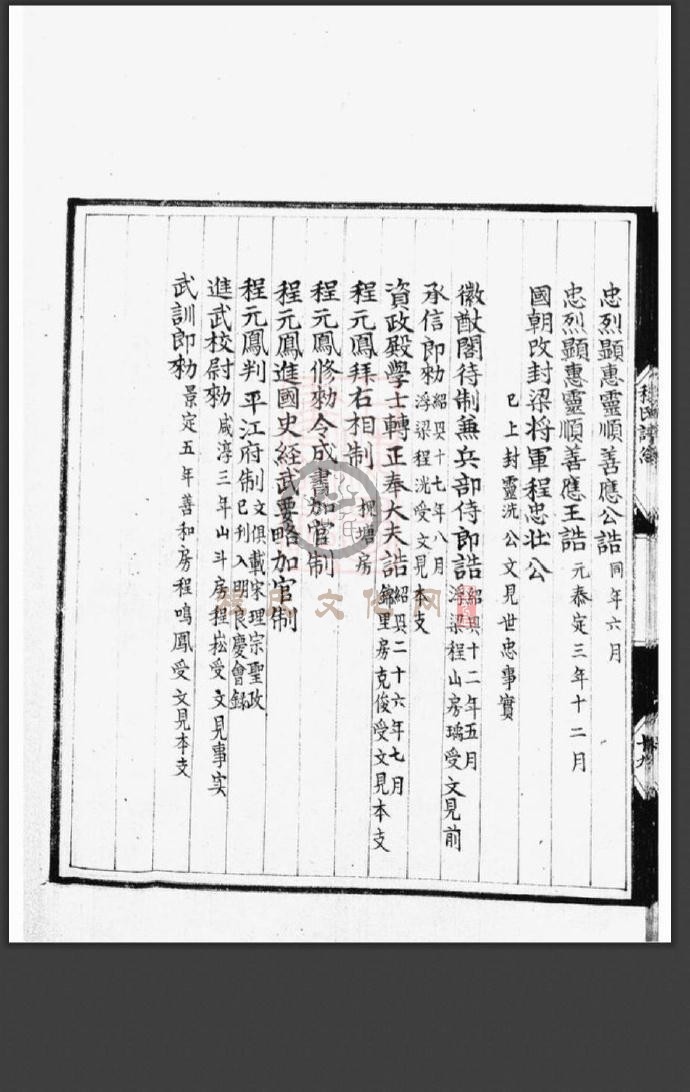 忠烈顯惠靈順善應公誥 同年六月
忠烈顯惠靈順善應王誥 元泰定三年十二月
國朝改封梁將軍程忠壯公
已上封靈洗公文見世忠事實
徽猷閣待制兼兵部侍郎誥 紹興十二年五月
浮梁程山房瑀受文見前
承信郎勑 紹興十七年八月
浮梁程洸受文見本支
資政殿學士轉正奉大夫誥 紹興二十六年七月
房克俊受文見本支
程元鳳拜右相制 槐塘房
程元鳳修勑令成書加官制
程元鳳進國史經武要略加官制
程元鳳判平江府制 文俱載宋理宗聖政
已刊入明良慶會錄
進武校尉勑 咸淳三年山斗房程崧受文見事实
武訓郎勑 景定五年善和房程鳴鳳受文見本支
程氏譜
文化网